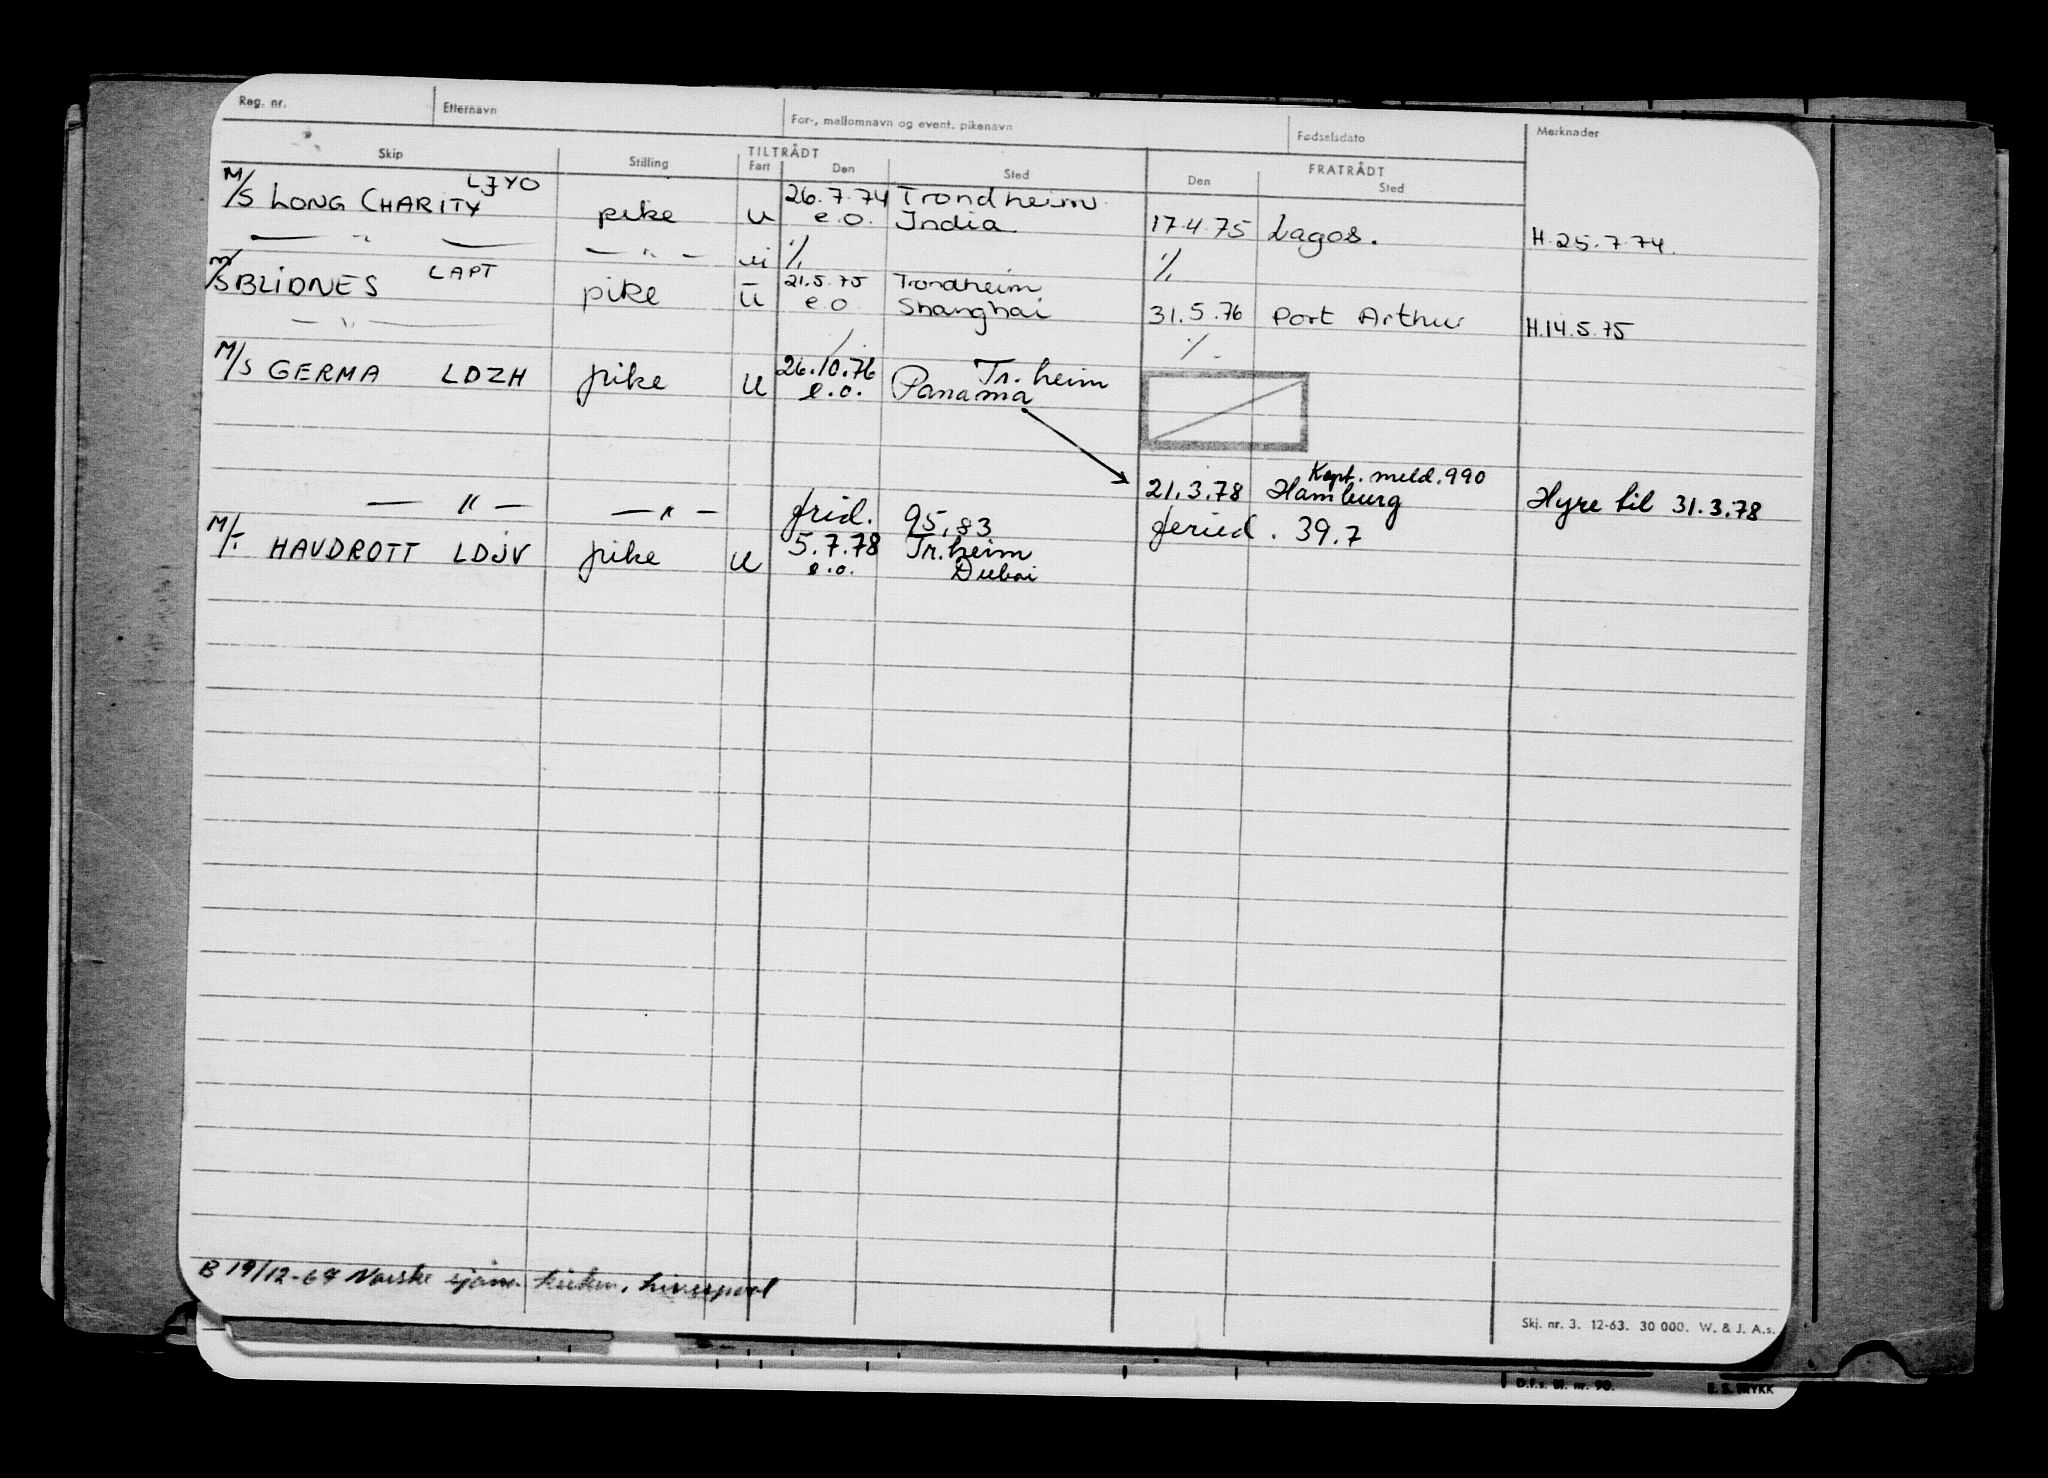 Reg. nr. Etternavn For-, mellomnavn og event. pikenavn Fødselsdato Merknader
Skip Stilling TILTRÅDT FRATRÅDT
Fart Den Sted Den Sted
M/S LONG CHARITY LJYO pike u 26.7.74 Trondheim
e.o. India 17.4.75 Lagos. H.25.7.74.
— " — — " — ui % %
M/S BLIDNES LAPT pike u 21.5.75 Trondheim
e.o. Shanghai 31.5.76 Port Arthur H.14.5.75
— " — / %
M/S GERMA LDZH pike u 26.10.76 Tr.heim
e.o. Panama
Kapt. meld. 990
21.3.78 Hamburg Hyre til 31.3.78
— " — — " — frid. 95,83 feried. 39.7
M/T HAVDROTT LDJV pike u 5.7.78 Tr.heim
e.o. Dubai
B 19/12-67 Norske sjøm. kirken, Liverpool
Skj. nr. 3. 12-63. 30 000. W. & J. A.s.
D.f.s. Bl. nr. 90.